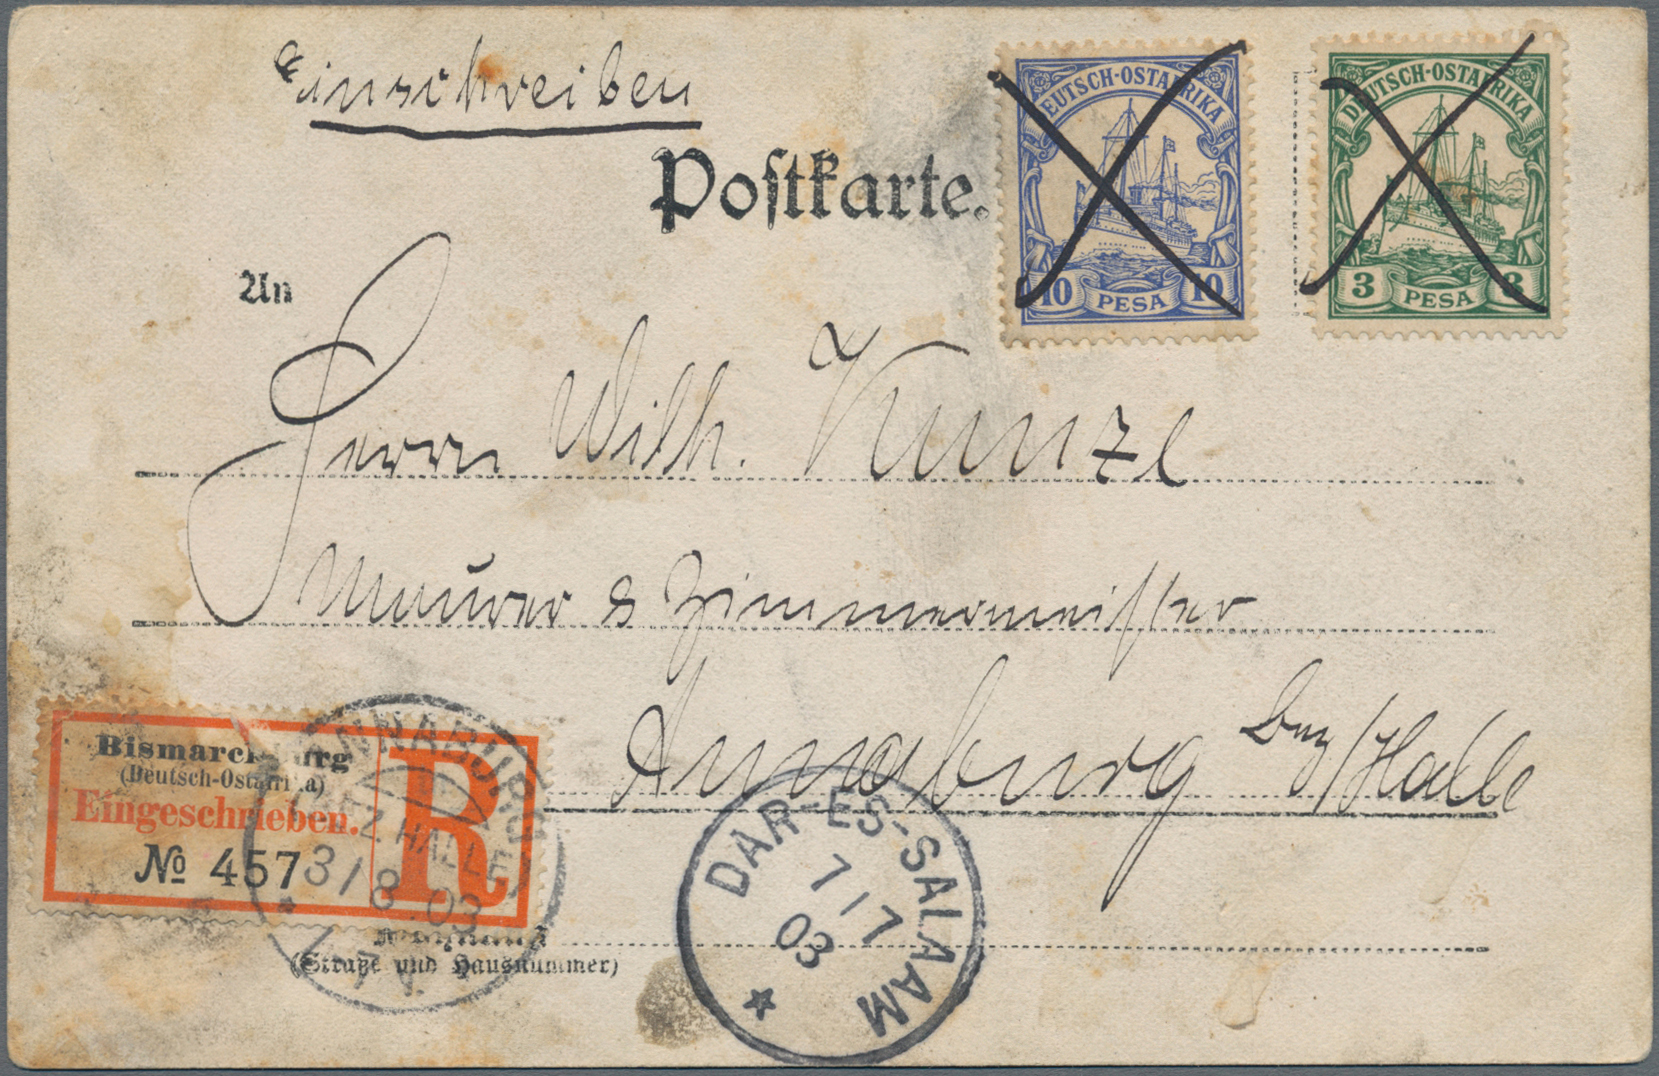 Einschreiben
Postkarte.
DEUTSCH-OSTAFRIKA
10 PESA 10
DEUTSCH-OSTAFRIKA
3 PESA 3
An
Herrn Wilh. Kunze
Maurer & Zimmermeister
Annaburg Bez/Halle
Bismarckburg
(Deutsch-Ostafrika)
Eingeschrieben.
R
№ 457
ANNABURG
BZ. HALLE
3/8.03
DAR-ES-SALAAM
7/7
03
(Straße und Hausnummer)